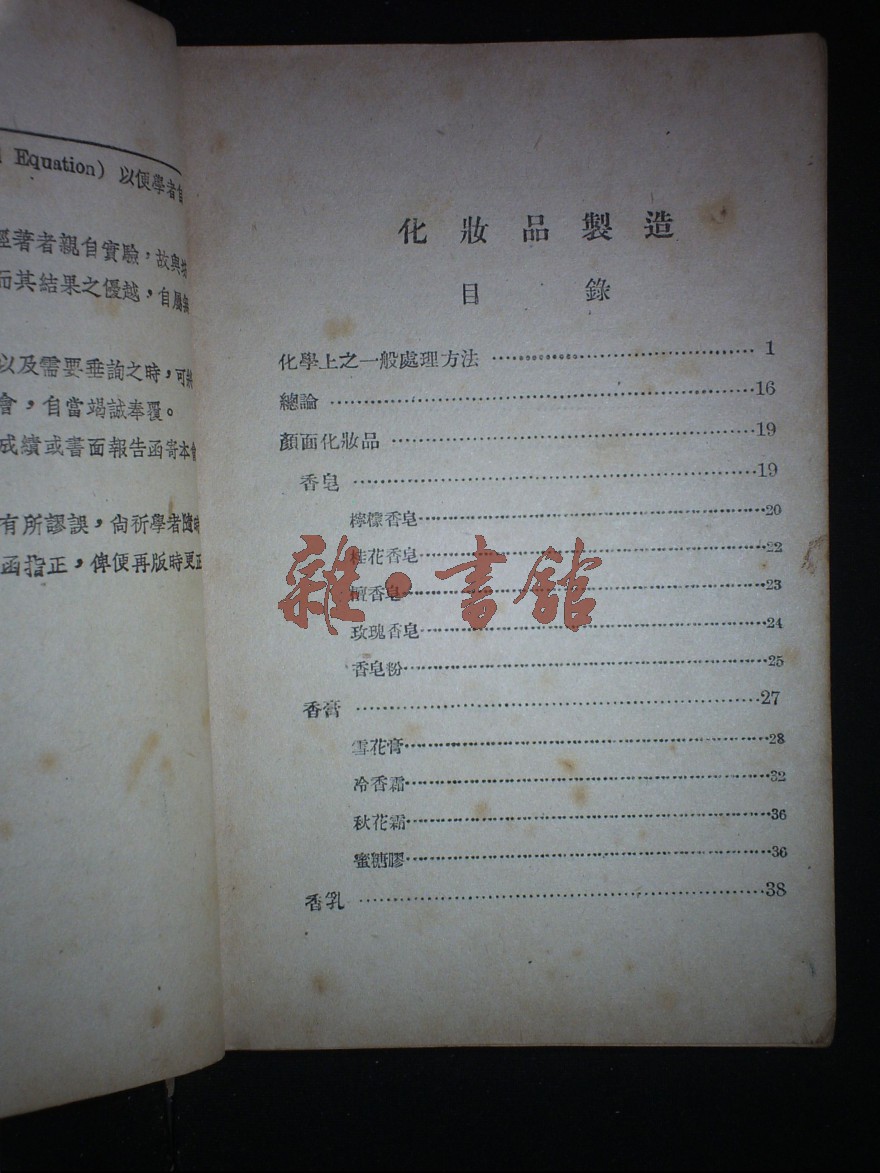 Equation) 以便學者自
經著者親自實驗，故與
而其結果之優越，自屬無
以及需要垂詢之時，可
會，自當竭誠奉覆。
成績或書面報告函寄本會
有所謬誤，尙祈學者隨時
函指正，俾便再版時更正
化妝品製造
目錄
化學上之一般處理方法 1
總論 16
顏面化妝品 19
香皂 19
檸檬香皂 20
桂花香皂 22
檀香皂 23
玫瑰香皂 24
香皂粉 25
香膏 27
雪花膏 28
冷香霜 32
秋花霜 36
蜜糖膠 36
香乳 38
雜·書館